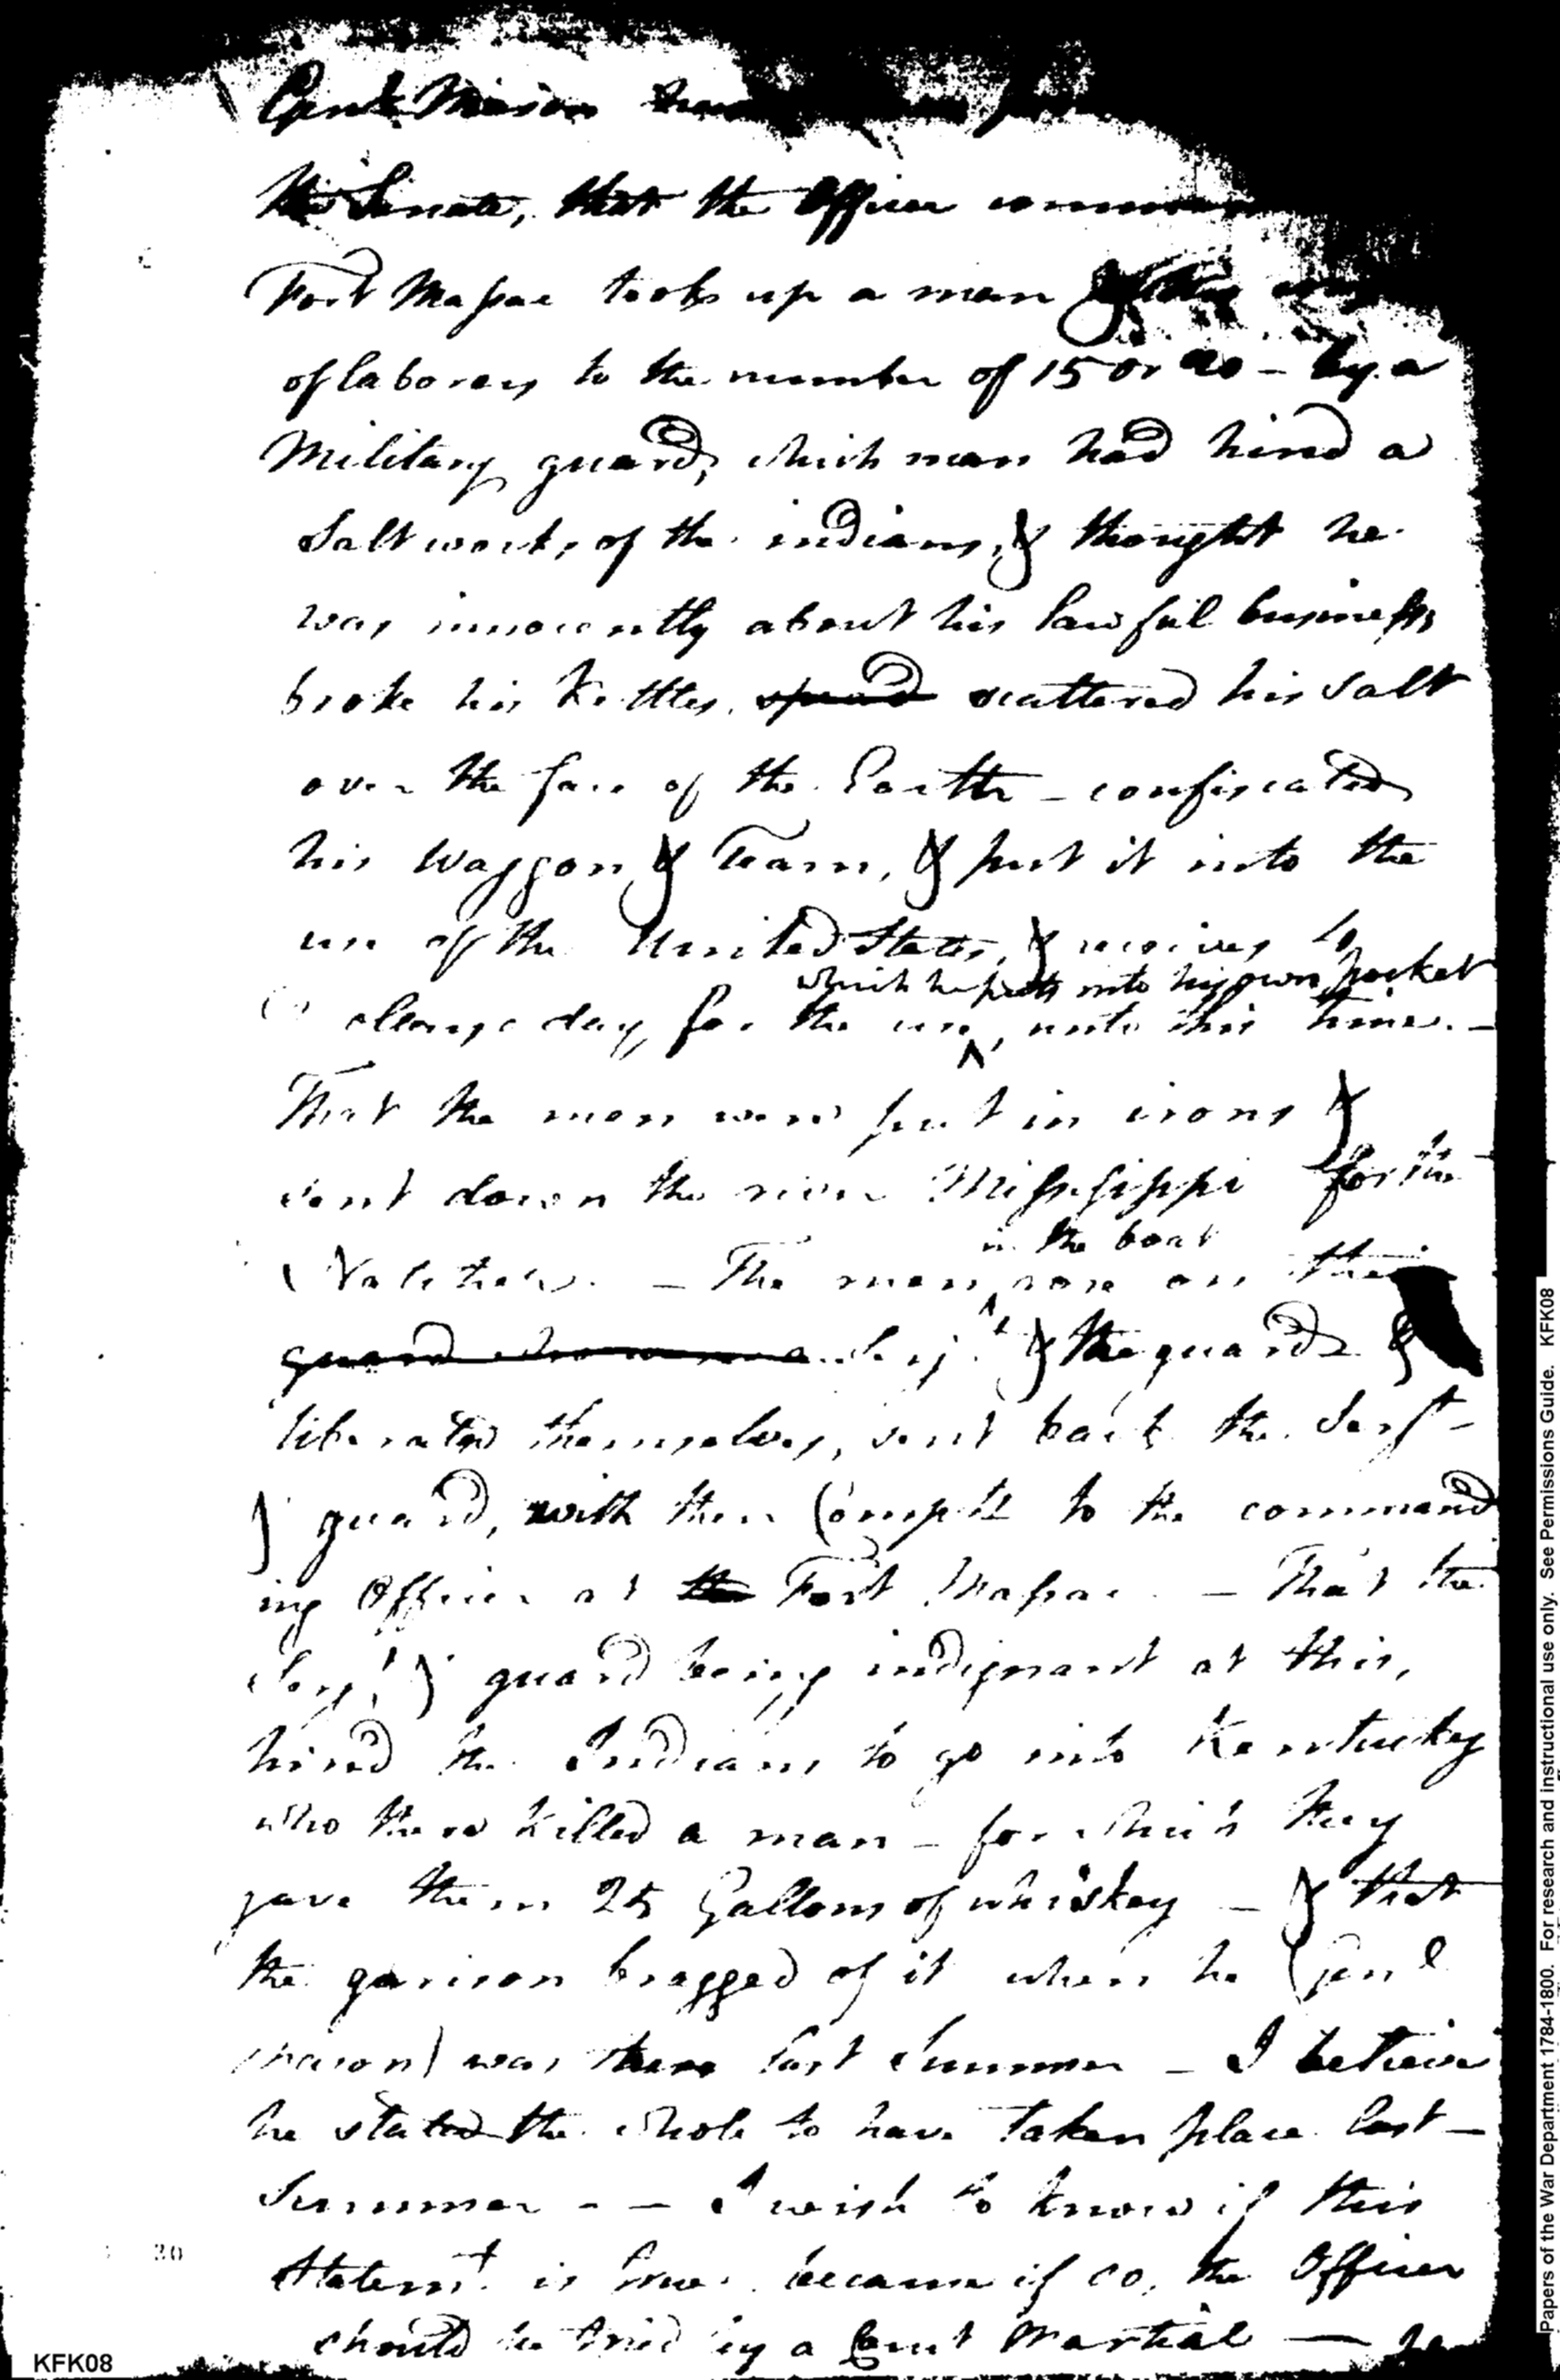 Genl Mason
the Senate, that the Officer
Fort Massac took up a man
of laborers to the number of 15 or 20 - by a
Military guard, which man had hired a
Salt works of the indians, & thought he
was innocently about his lawful business
broke his Kettles, spread scattered his salt
over the face of the Earth - confiscated
his Waggon & Team, & put it into the
use of the United States, & receives
which he puts into his own pocket
a day for the use, unto this time. -
That the men were put in irons &
sent down the river Mississippi for the
in the boat
Natchez. - The men rose on the
guard & the guard &
liberated themselves, sent back the Serjt -
& guard, with their Complts to the command
ing Officer at the Fort Massac - That the
Serjt & guard being indignant at this,
hired the Indians to go into Kentucky
who there killed a man - for which they
gave them 25 Gallons of whiskey - & that
the garison bragged of it when he (Genl
Mason) was there last Summer - I believe
he stated the whole to have taken place last -
Summer - - I wish to know if this
Statemt is true, because if so, the Officer
should be tried by a Court Martial -
30
KFK08
Papers of the War Department 1784-1800. For research and instructional use only. See Permissions Guide. KFK08